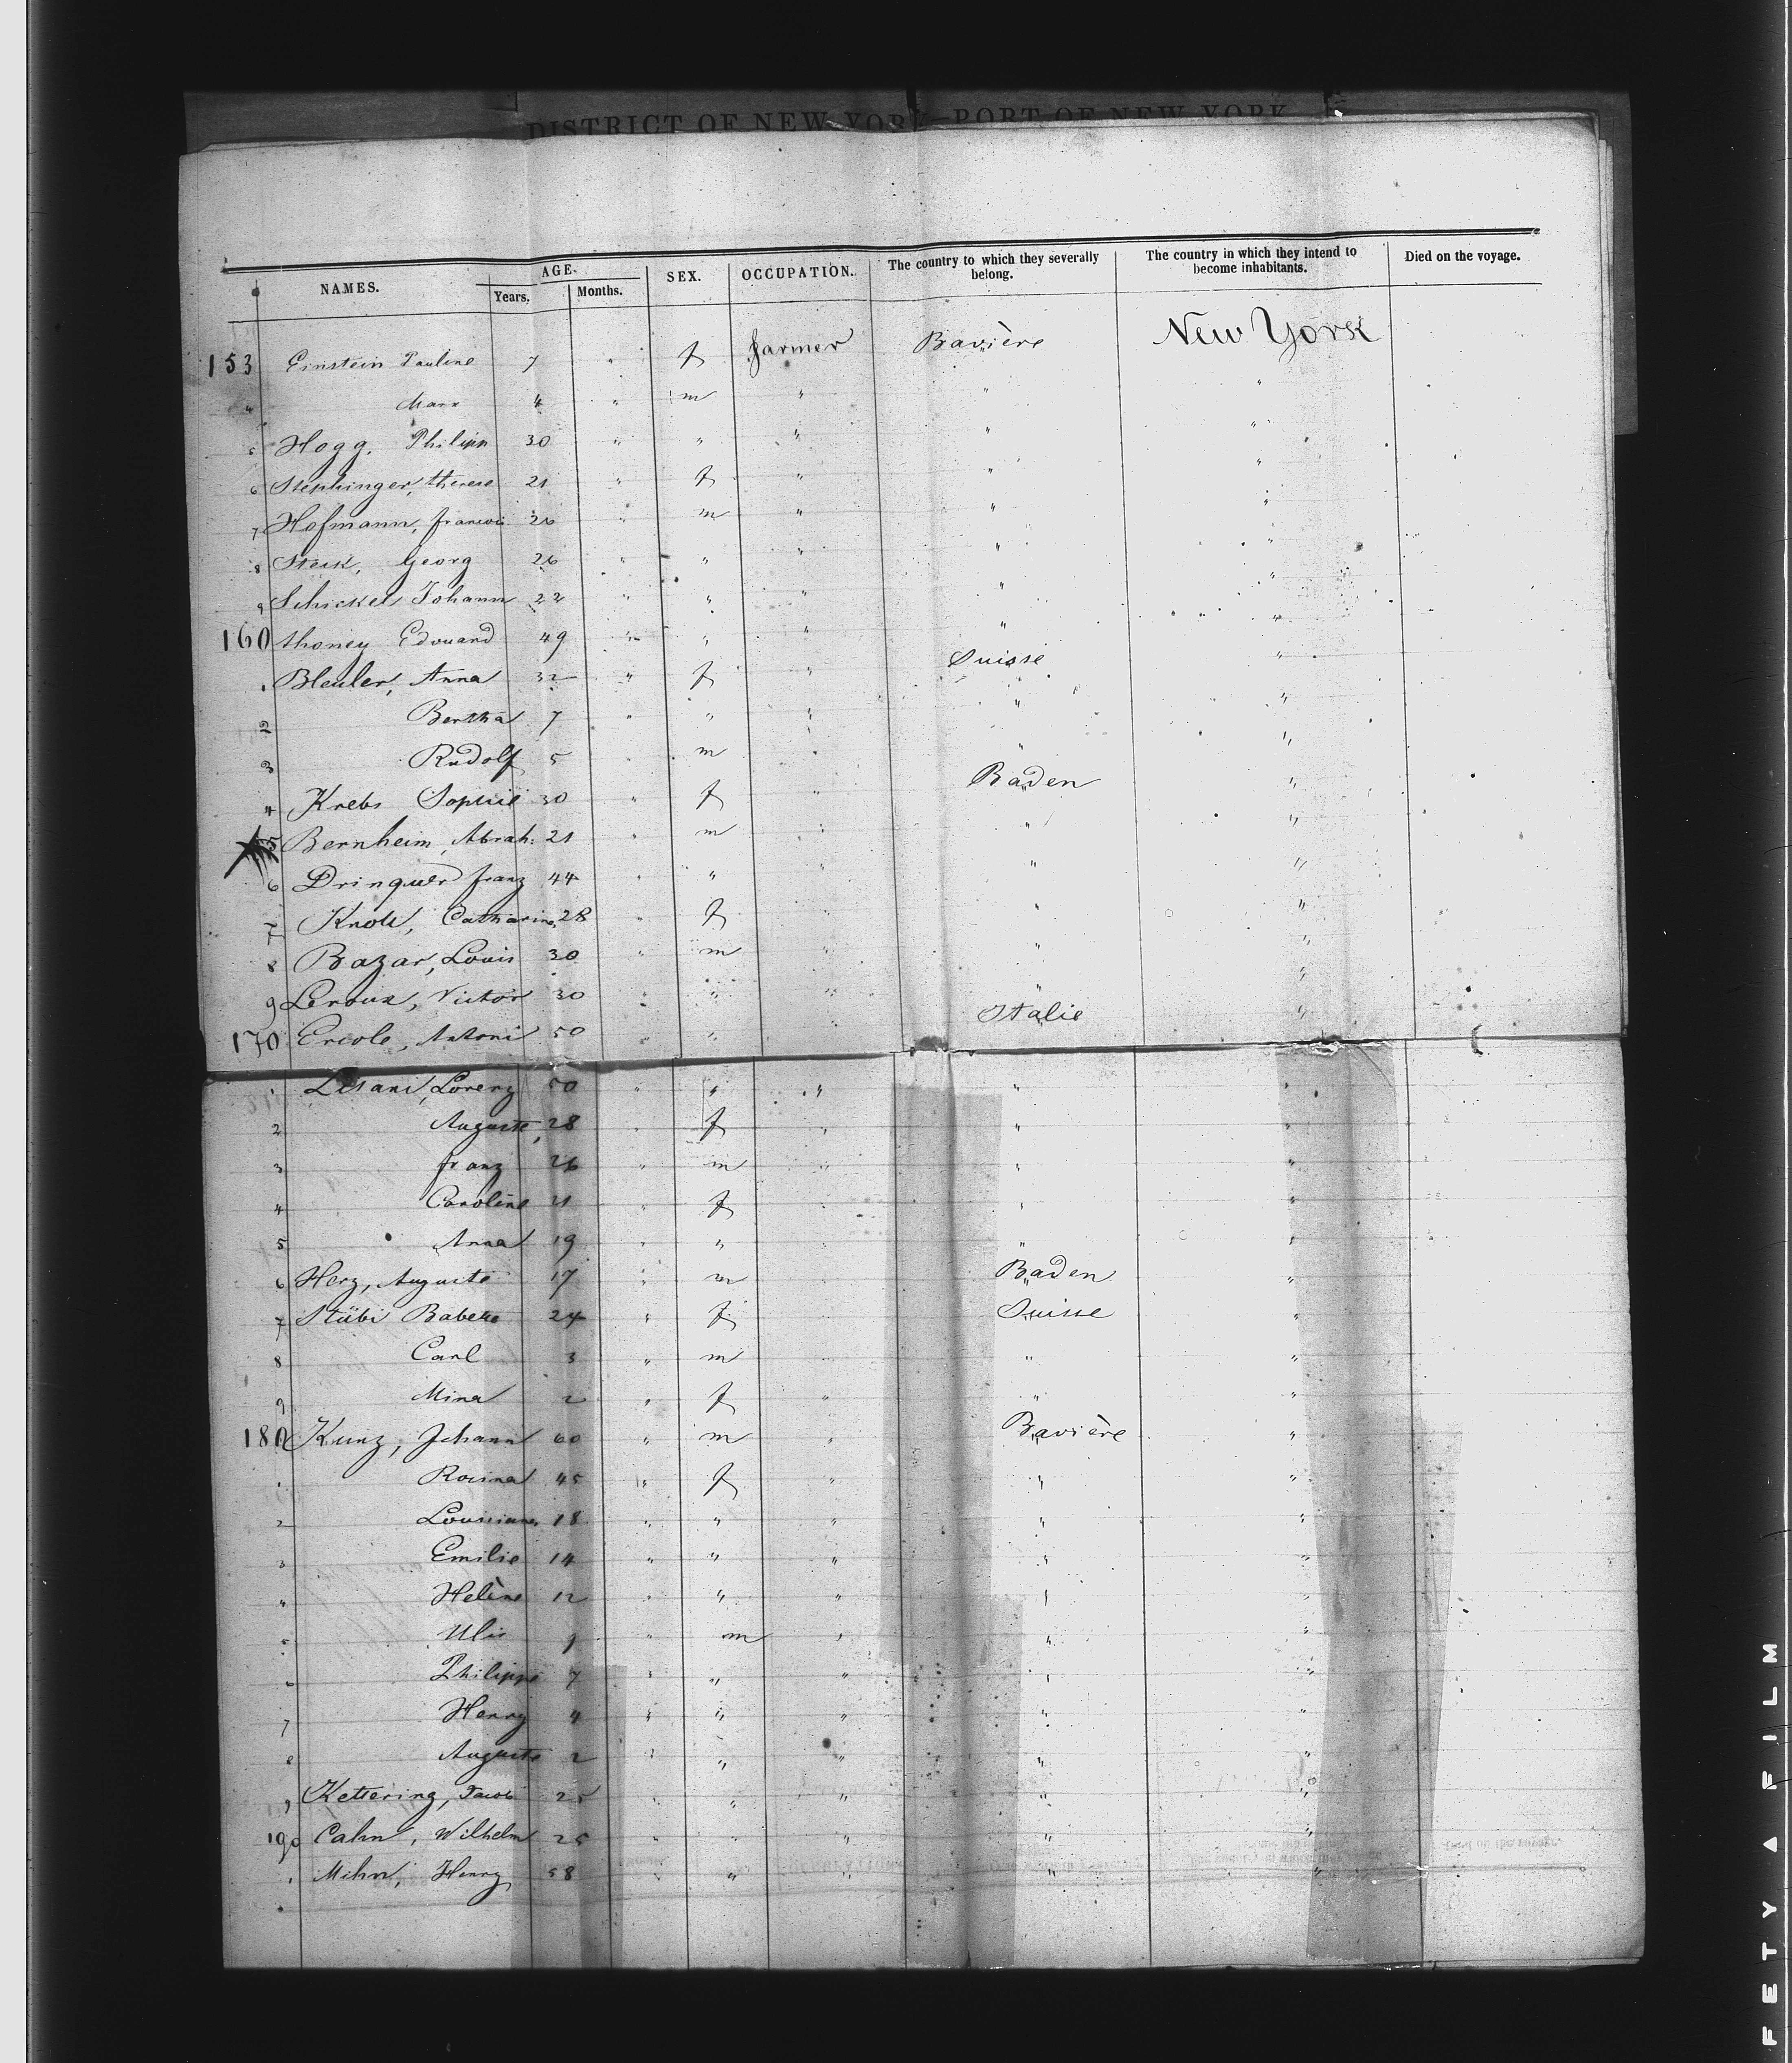 DISTRICT OF NEW YORK—PORT OF NEW YORK
NAMES. AGE. Years. Months. SEX. OCCUPATION. The country to which they severally belong. The country in which they intend to become inhabitants. Died on the voyage.
153 Einstein Pauline 7 " f farmer Bavière New York
4 Marx 4 " m " " "
5 Hogg, Philipp 30 " " " " "
6 Stephinger, therese 21 " f " " "
7 Hofmann, francois 26 " m " " "
8 Steck, Georg 26 " " " " "
9 Schickel Johann 22 " " " " "
160 thoney Edouard 49 " " " " "
1 Bleuler, Anna 32 " f " Suisse "
2 Bertha 7 " " " " "
3 Rudolf 5 " m " " "
4 Krebs Sophie 30 " f " Baden "
5 Bernheim, Abrah: 21 " m " " "
6 Drinquer franz 44 " " " " "
7 Knoll, Catharine, 28 " f " " "
8 Bazar, Louis 30 " m " " "
9 Leroux, Victor 30 " " " " "
170 Ercole, Antoni 50 " " " Italie "
1 Lisani, Lorenz 50 " " " " "
2 Auguste, 28 " f " " "
3 franz 26 " m " " "
4 Caroline 21 " f " " "
5 Anna 19 " " " " "
6 Herz, Auguste 17 " m " Baden "
7 Stübi Babette 24 " f " Suisse "
8 Carl 3 " m " " "
9 Mina 2 " f " " "
180 Kunz, Johann 60 " m " Bavière "
1 Rosina 45 " f " " "
2 Louisiana 18 " " " " "
3 Emilie 14 " " " " "
4 Helène 12 " " " " "
5 Ulis 9 " m " " "
6 Philippe 7 " " " " "
7 Henry 4 " " " " "
8 Auguste 2 " " " " "
9 Kettering, Jacob 25 " " " " "
190 Cahn, Wilhelm 25 " " " " "
1 Mihn, Henry 58 " " " " "
FETY ▲ FILM